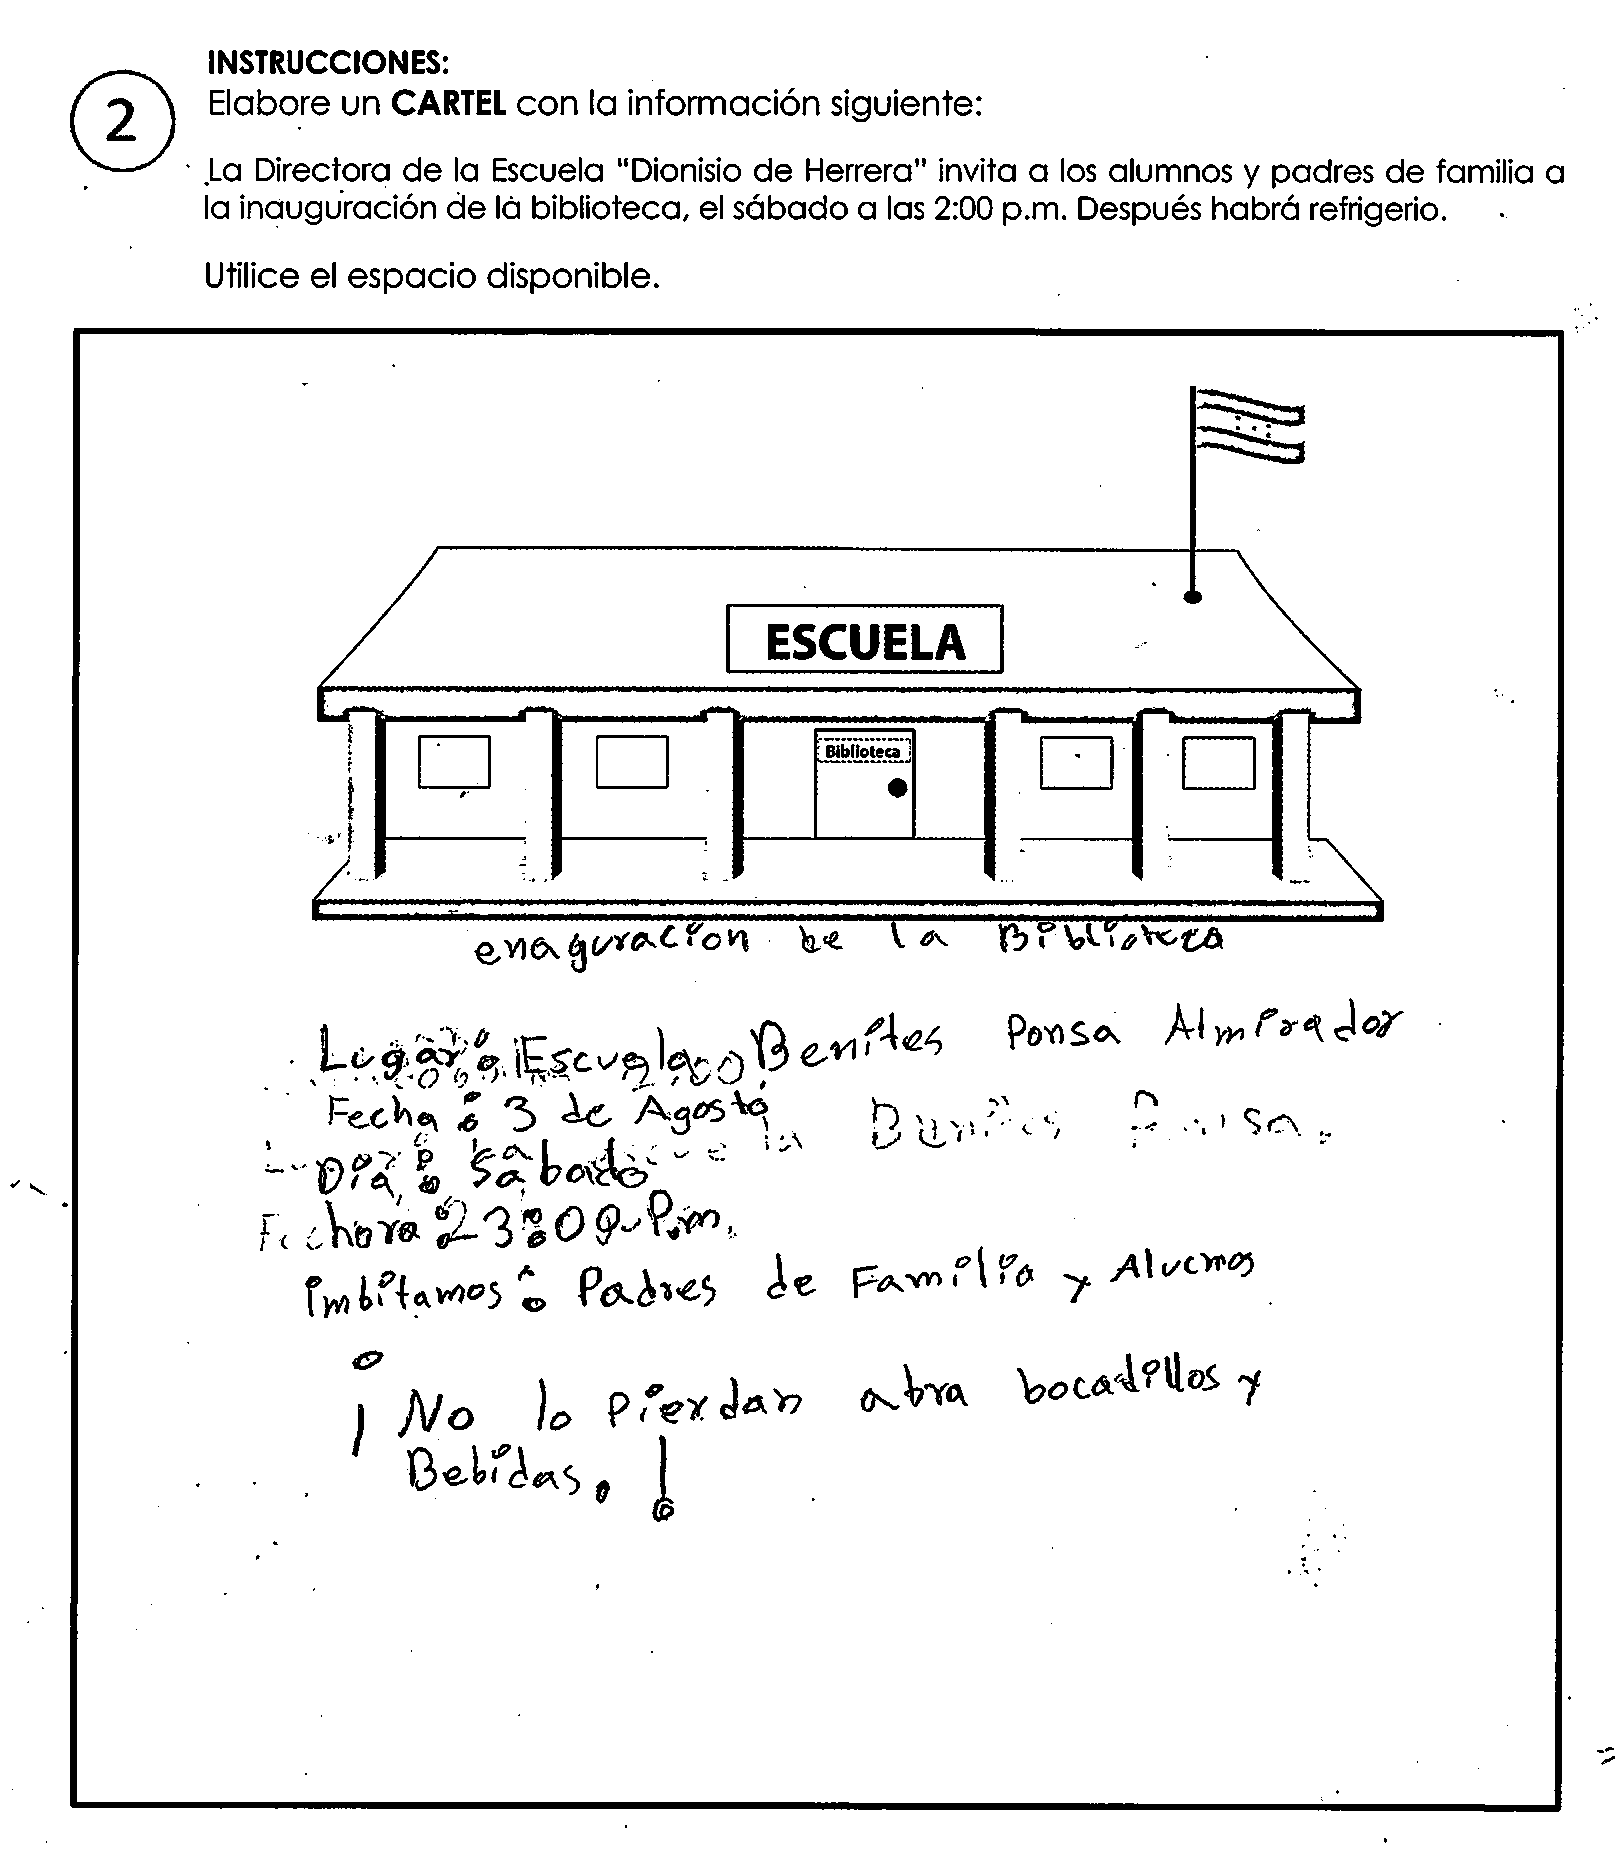 INSTRUCCIONES:
2
Elabore un CARTEL con la información siguiente:
La Directora de la Escuela "Dionisio de Herrera" invita a los alumnos y padres de familia a
la inauguración de la biblioteca, el sábado a las 2:00 p.m. Después habrá refrigerio.
Utilice el espacio disponible.
ESCUELA
Biblioteca
enaguracion be la Biblioteca
Lugar: Escuela Benites Ponsa Almirador
Fecha: 3 de Agosto
Dia: Sabado
hora: P.m.
imbitamos: Padres de Familia y Alucmos
¡No lo Pierdan abra bocadillos y
Bebidas.!